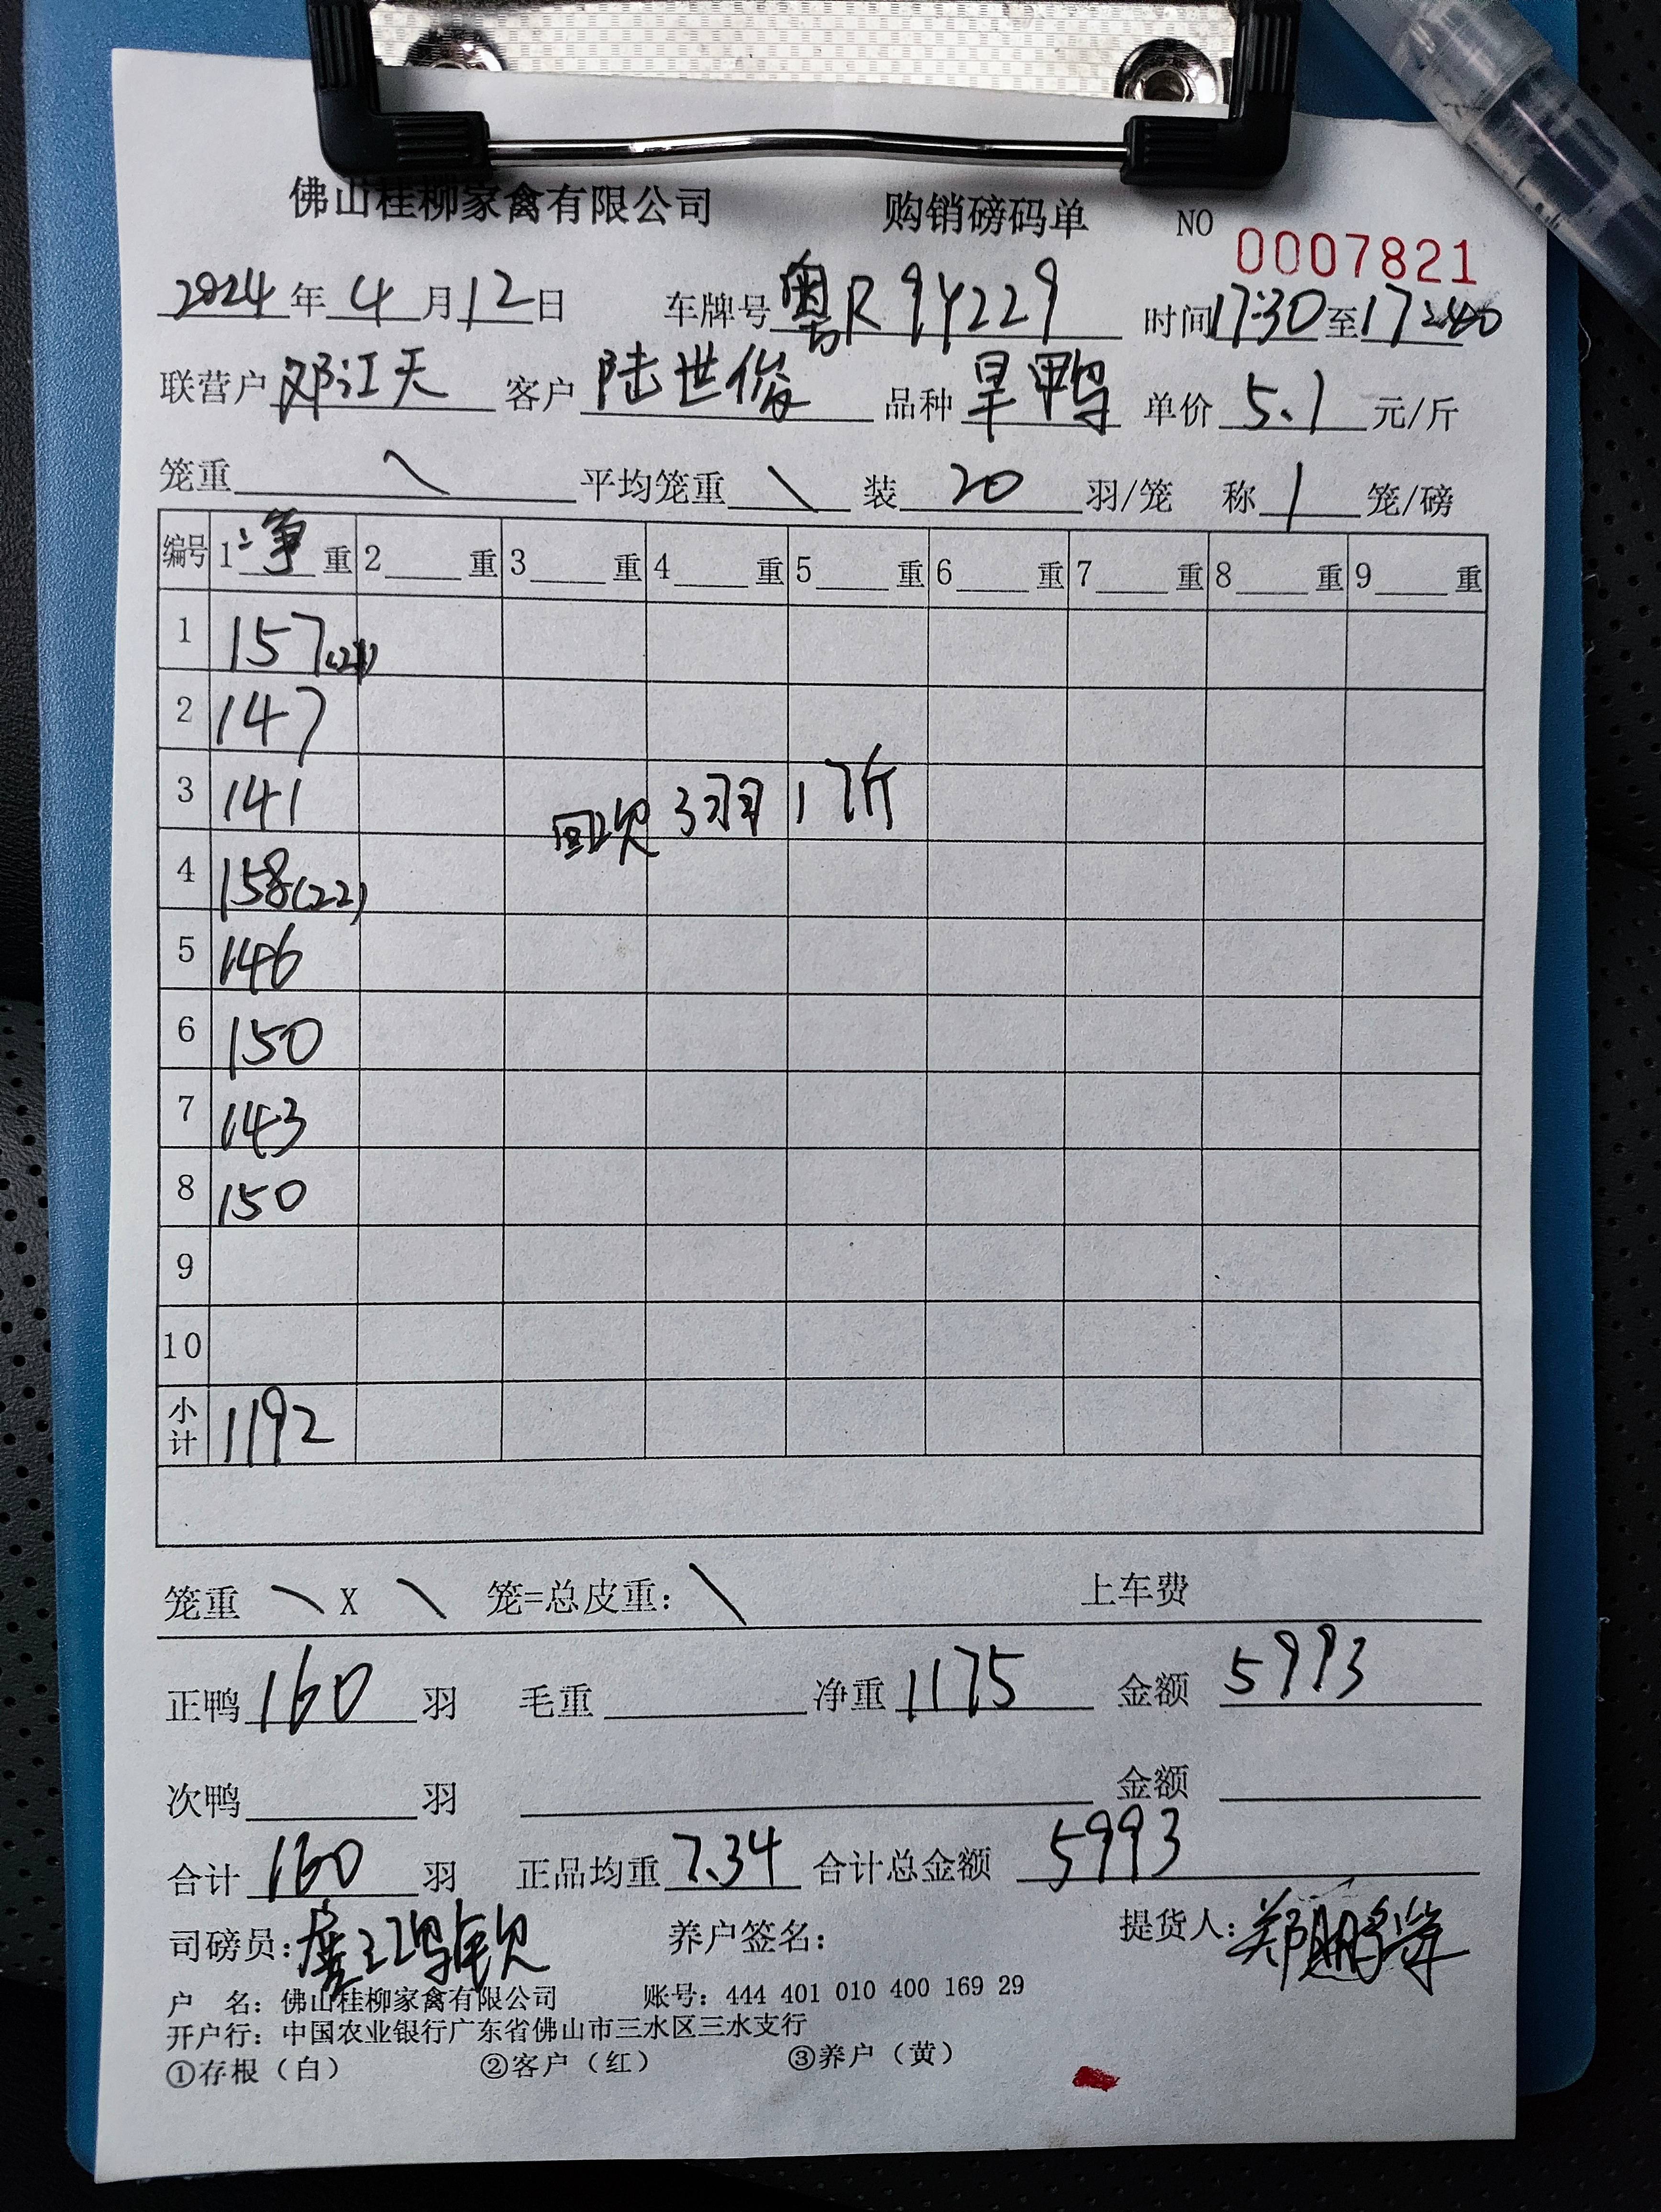 佛山桂柳家禽有限公司 购销磅码单 NO 0007821
2024年4月12日 车牌号粤R9Y229 时间17:30至17:40
联营户邓江天 客户陆世俊 品种旱鸭 单价5.1元/斤
笼重\ 平均笼重\ 装20羽/笼 称1笼/磅
编号 1净重 2重 3重 4重 5重 6重 7重 8重 9重
1 157(21)
2 147
3 141
回欠3羽17斤
4 158(22)
5 146
6 150
7 143
8 150
9
10
小计 1192
笼重\X\笼=总皮重:\ 上车费
正鸭160羽 毛重 净重1175 金额5993
次鸭 羽 金额
合计160羽 正品均重7.34 合计总金额5993
司磅员: 养户签名: 提货人:
户 名:佛山桂柳家禽有限公司 账号:444 401 010 400 169 29
开户行:中国农业银行广东省佛山市三水区三水支行
①存根(白) ②客户(红) ③养户(黄)